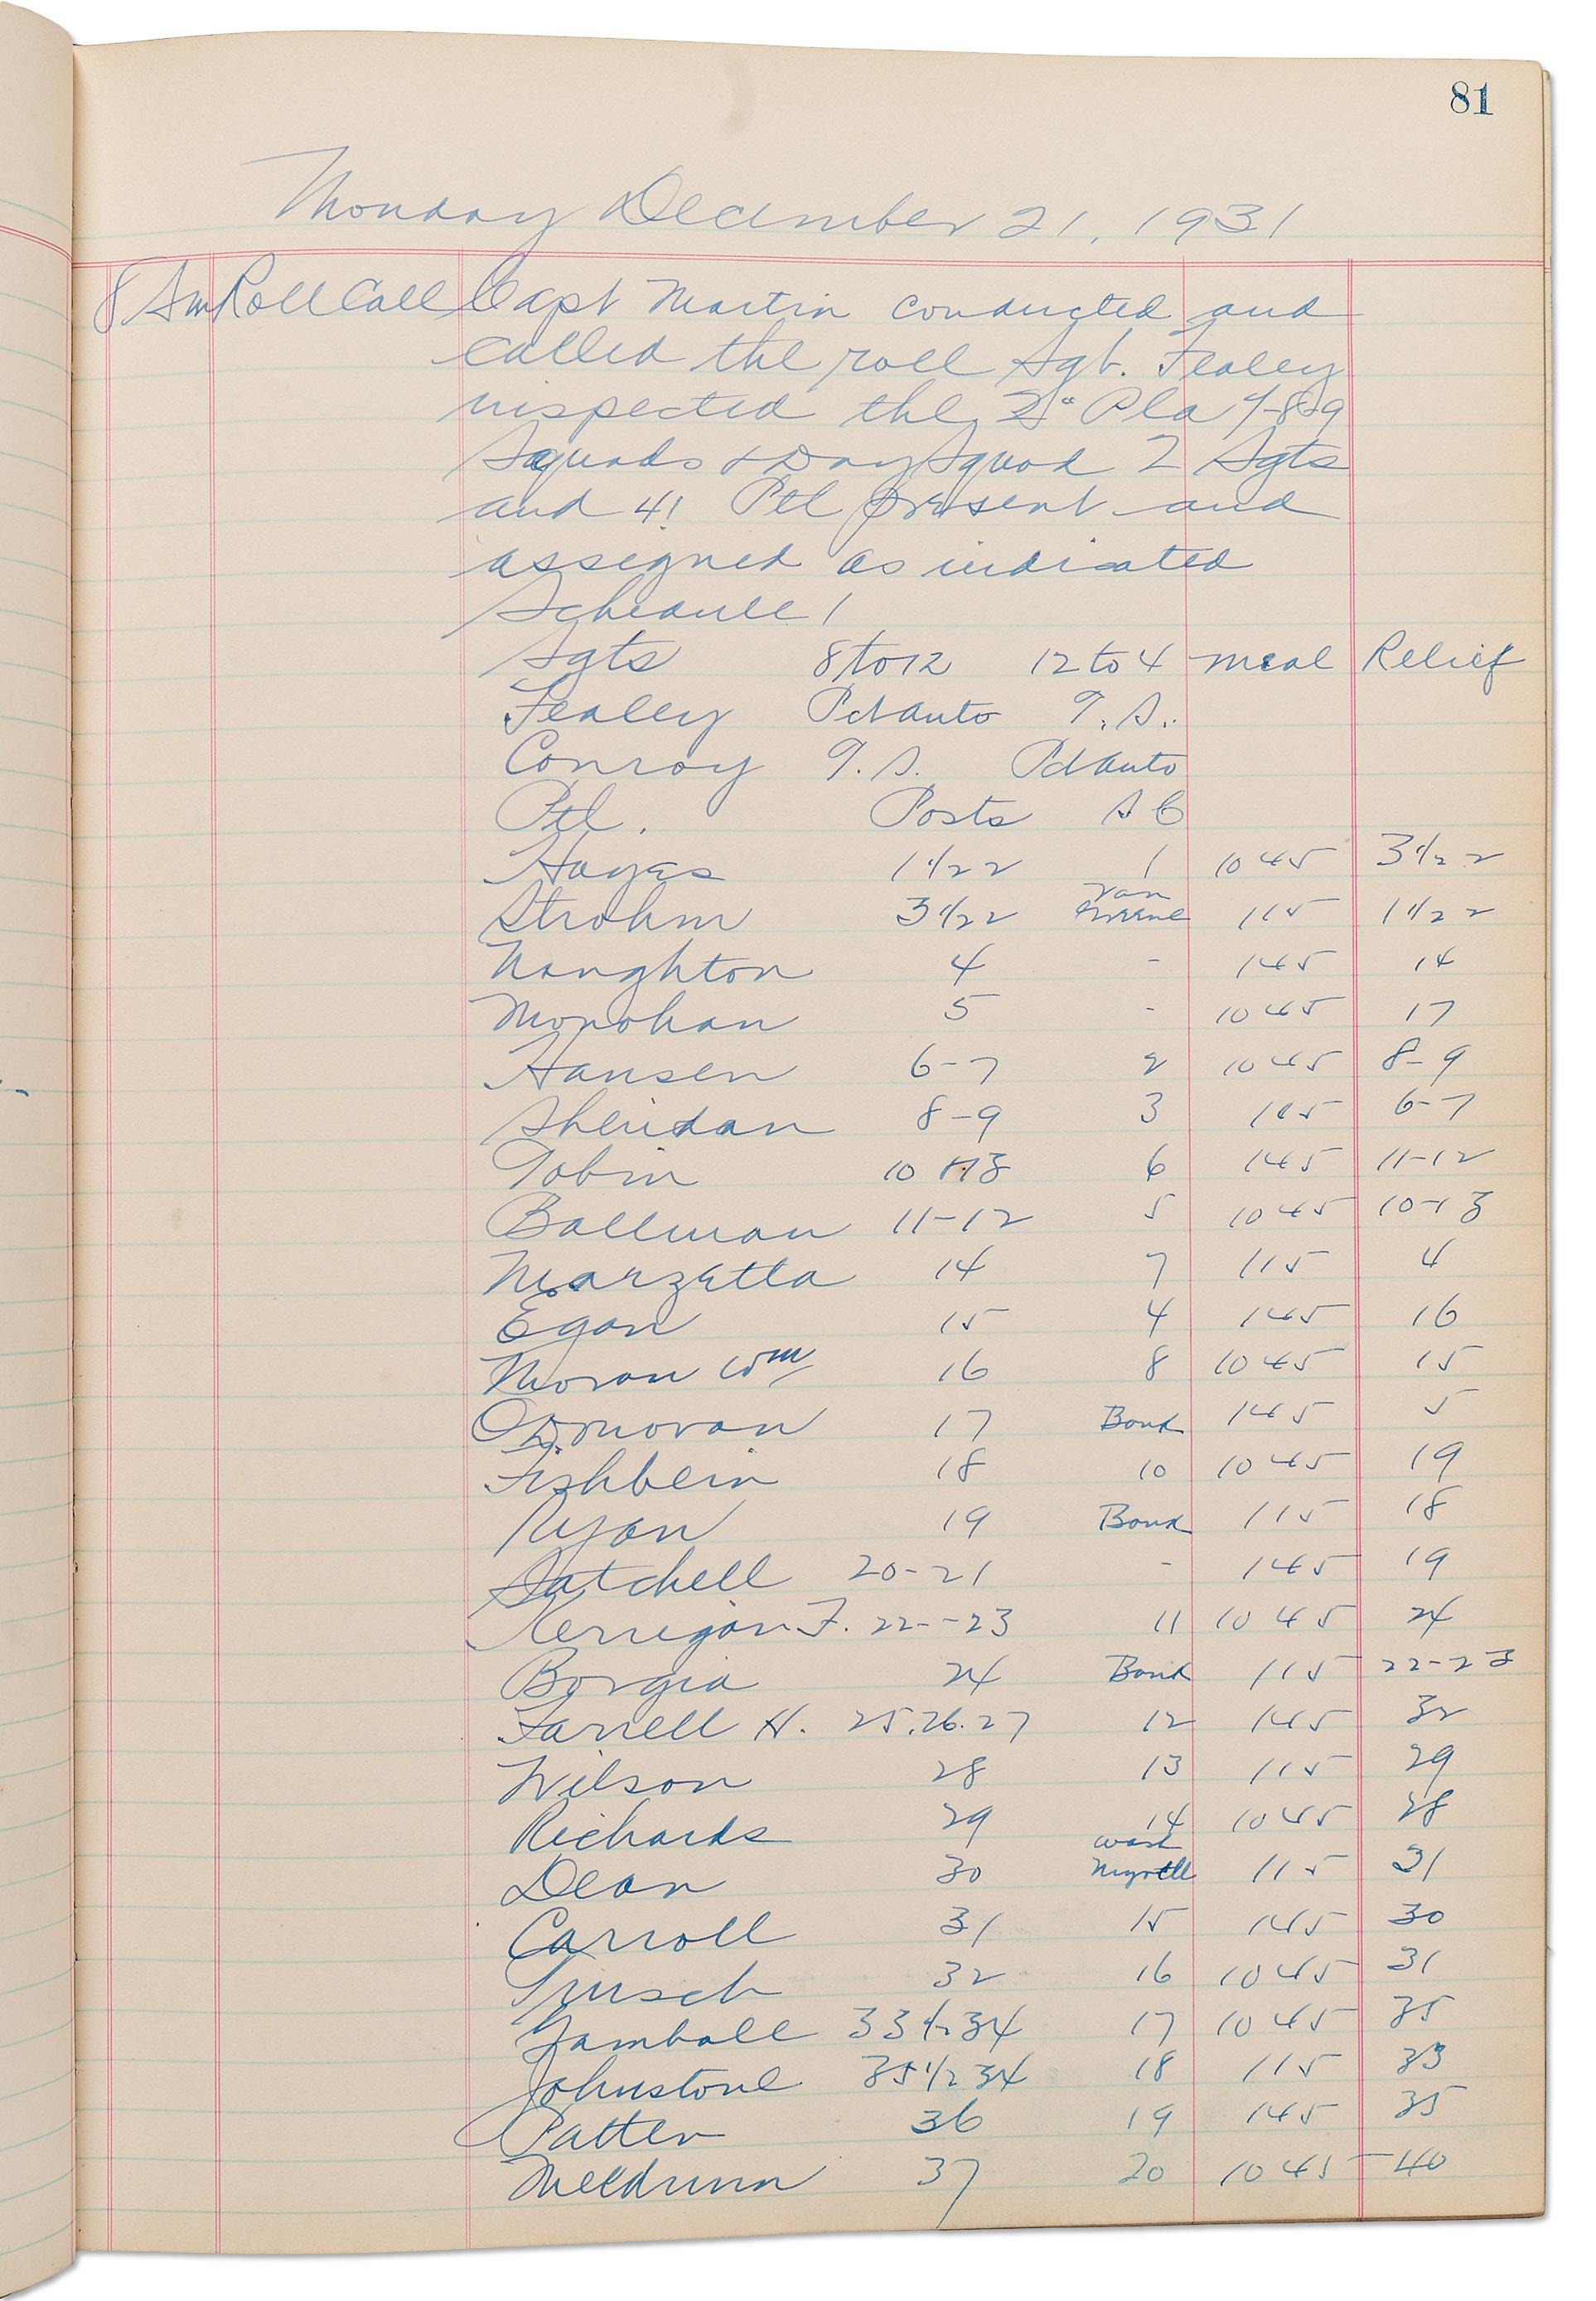 81
Monday December 21, 1931
8 Am Roll Call Capt Martin conducted and
called the roll Sgt. Fealey
inspected the 2" Pla 7-8-9
Squads & Day Squad 2 Sgts
and 41 Ptl present and
assigned as indicated
Schedule 1
Sgts 8 to 12 12 to 4 meal Relief
Fealey Pct Auto T.S.
Conroy T.S. Pct Auto
Ptl. Posts S C
Hayes 1 1/2 2 1 10 45 3 1/2 2
Strohm 3 1/2 2 Van 1 15 1 1/2 2
Naughton 4 - 1 45 14
Monohan 5 - 10 45 17
Hansen 6-7 2 10 45 8-9
Sheridan 8-9 3 1 15 6-7
Tobin 10 13 6 1 45 11-12
Ballman 11-12 5 10 45 10-13
Marzetta 14 7 1 15 4
Egan 15 4 1 45 16
Moran Wm 16 8 10 45 15
O'Donovan 17 Bond 1 45 5
Fishbein 18 10 10 45 19
Ryan 19 Bond 1 15 18
Satchell 20-21 - 1 45 19
Kerrigan F. 22--23 11 10 45 24
Borgia 24 Bond 1 15 22-23
Farrell H. 25.26.27 12 1 45 32
Wilson 28 13 1 15 29
Richards 29 14 10 45 28
Dean 30 Wash Myrtle 1 15 31
Carroll 31 15 1 45 30
Trusch 32 16 10 45 31
Gamball 33 1/2 34 17 10 45 35
Johnstone 35 1/2 34 18 1 15 33
Patten 36 19 1 45 35
Meldrum 37 20 10 45 40